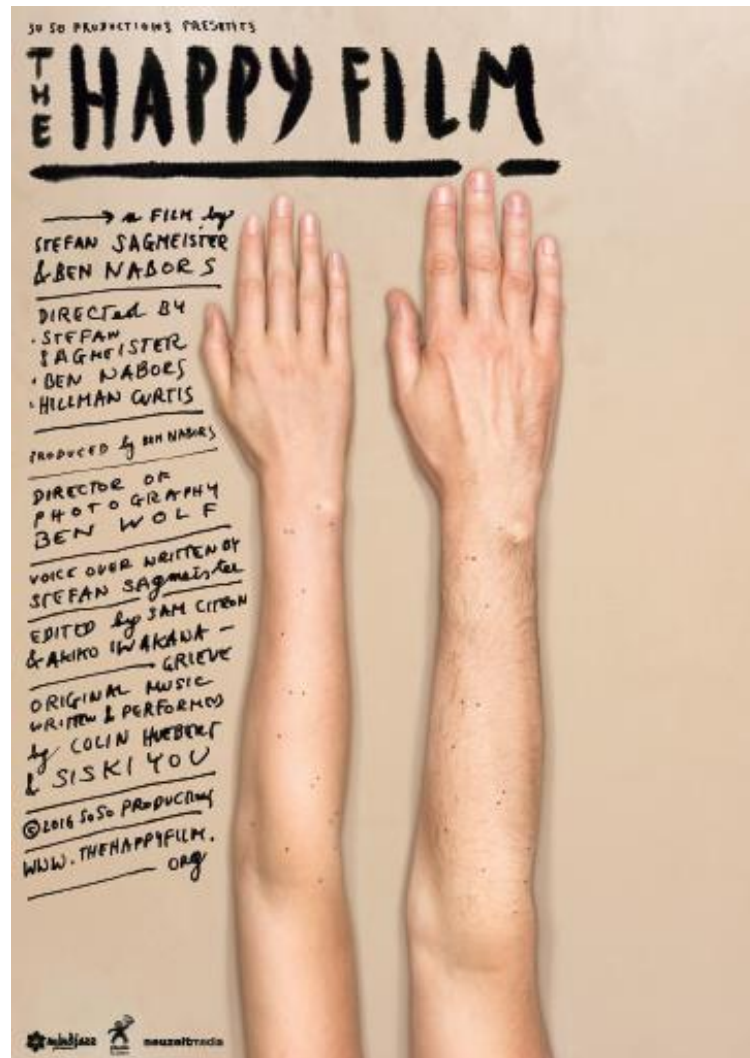 SO SO PRODUCTIONS PRESENTS
THE HAPPY FILM
a FILM by
STEFAN SAGMEISTER
& BEN NABORS
DIRECTED BY
· STEFAN
SAGMEISTER
· BEN NABORS
· HILLMAN CURTIS
PRODUCED by BEN NABORS
DIRECTOR OF
PHOTOGRAPHY
BEN WOLF
VOICE OVER WRITTEN BY
STEFAN SAgmeister
EDITED by SAM CITRON
& AKIKO IWAKAWA –
GRIEVE
ORIGINAL MUSIC
WRITTEN & PERFORMED
by COLIN HUEBERT
& SISKIYOU
©2016 SoSo PRODUCTIONS
WWW.THEHAPPYFILM.
ORg
mindjazz
neuzeitmedia